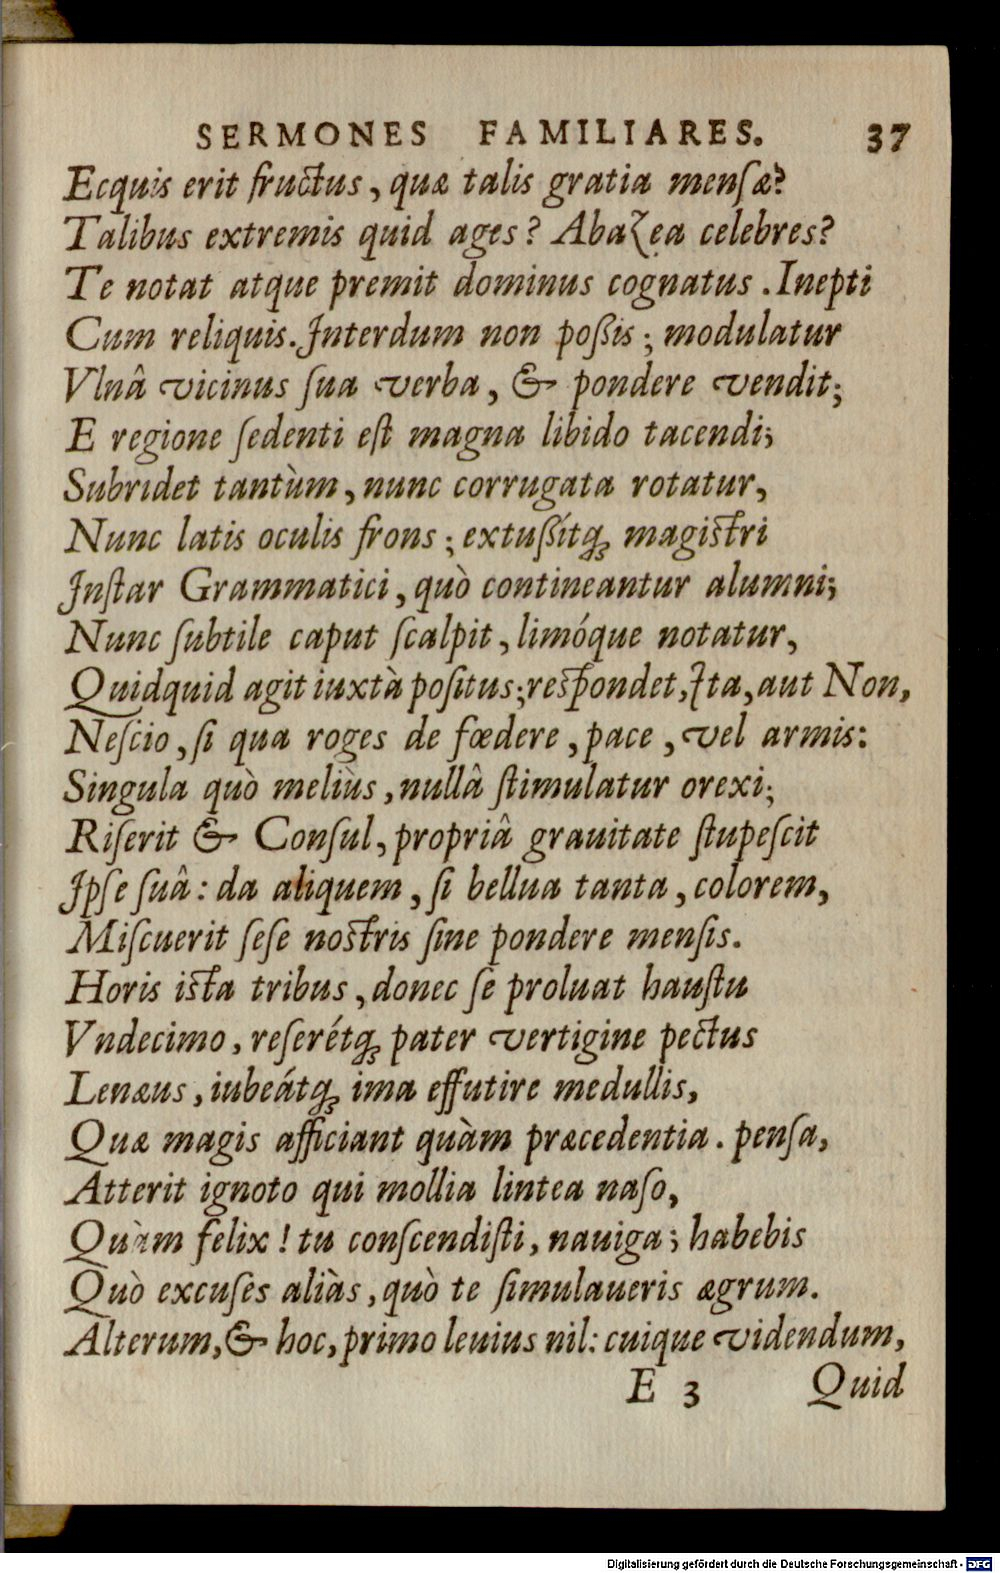 SERMONES FAMILIARES. 37
Ecquis erit fructus, quæ talis gratia menſæ?
Talibus extremis quid ages? Abazea celebres?
Te notat atque premit dominus cognatus. Inepti
Cum reliquis. Interdum non poßis; modulatur
Vlnâ vicinus ſua verba, & pondere vendit;
E regione ſedenti eſt magna libido tacendi;
Subridet tantùm, nunc corrugata rotatur,
Nunc latis oculis frons; extußítq; magiſtri
Inſtar Grammatici, quò contineantur alumni;
Nunc ſubtile caput ſcalpit, limóque notatur,
Quidquid agit iuxtà poſitus; reſpondet, Ita, aut Non,
Neſcio, ſi qua roges de fœdere, pace, vel armis:
Singula quò meliùs, nullâ ſtimulatur orexi;
Riſerit & Conſul, propriâ grauitate ſtupeſcit
Ipſe ſuâ: da aliquem, ſi bellua tanta, colorem,
Miſcuerit ſeſe noſtris ſine pondere menſis.
Horis iſta tribus, donec ſe proluat hauſtu
Vndecimo, reſerétq; pater vertigine pectus
Lenæus, iubeátq; ima effutire medullis,
Quæ magis afficiant quàm præcedentia. penſa,
Atterit ignoto qui mollia lintea naſo,
Quàm felix! tu conſcendiſti, nauiga; habebis
Quò excuſes aliàs, quò te ſimulaueris ægrum.
Alterum, & hoc, primo leuius nil: cuique videndum,
E 3 Quid
Digitalisierung gefördert durch die Deutsche Forschungsgemeinschaft - DFG